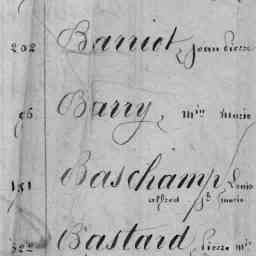 202 Barriot, Jean Pierre
96 Barry, Mie Marie
151 Baschamp, Louis
alfred Jh marie
Bastard, Pierre Mie